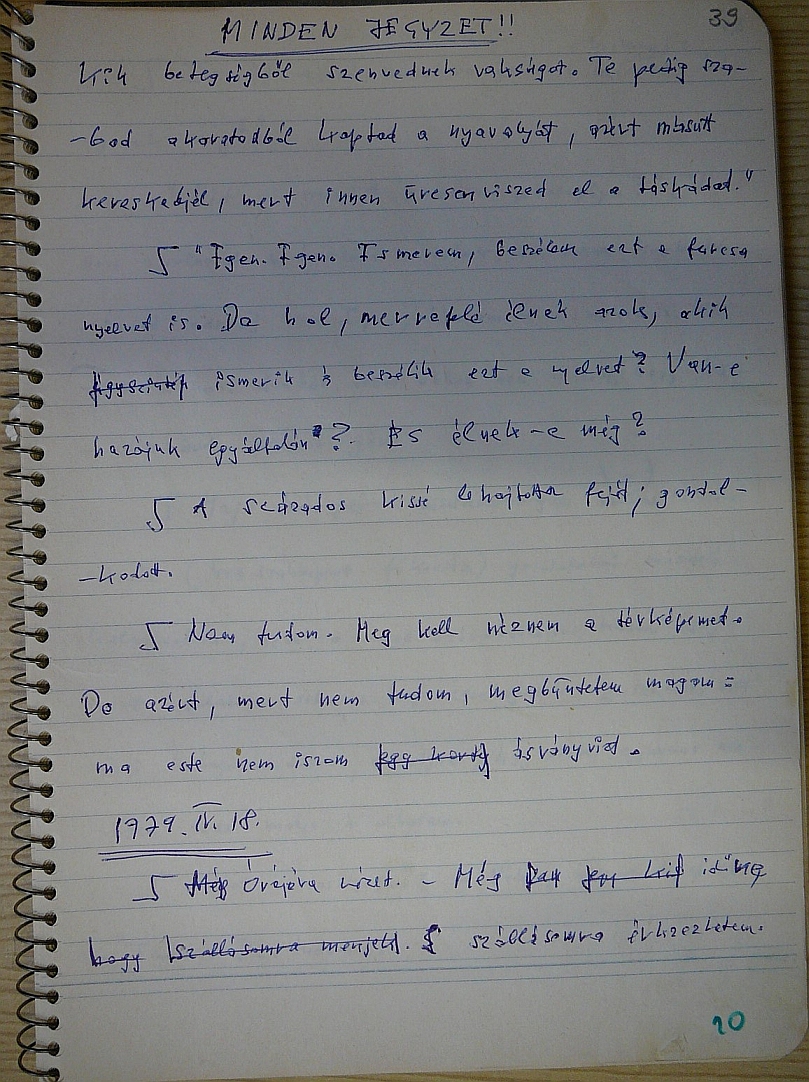 39
MINDEN JEGYZET!!
kik betegségből szenvednek vakságot. Te pedig sza-
-bad akaratodból kaptad a nyavalyát, azért másutt
kereskedjél, mert innen üresen viszed el a táskádat."
"Igen. Igen. Ismerem, beszélem ezt a furcsa
nyelvet is. De hol, merrefelé élnek azok, akik
ismerik s beszélik ezt a nyelvet? Van-e
hazájuk egyáltalán? És élnek-e még?
A százados kissé lehajtotta fejét; gondol-
-kodott.
Nem tudom. Meg kell néznem a térképemet.
De azért, mert nem tudom, megbüntetem magam:
ma este nem iszom egy korty ásványvizet.
1979. IV. 18.
Még Órájára nézett. - Még van
hogy szállásomra menjek. szállásomra érkezhetem.
10